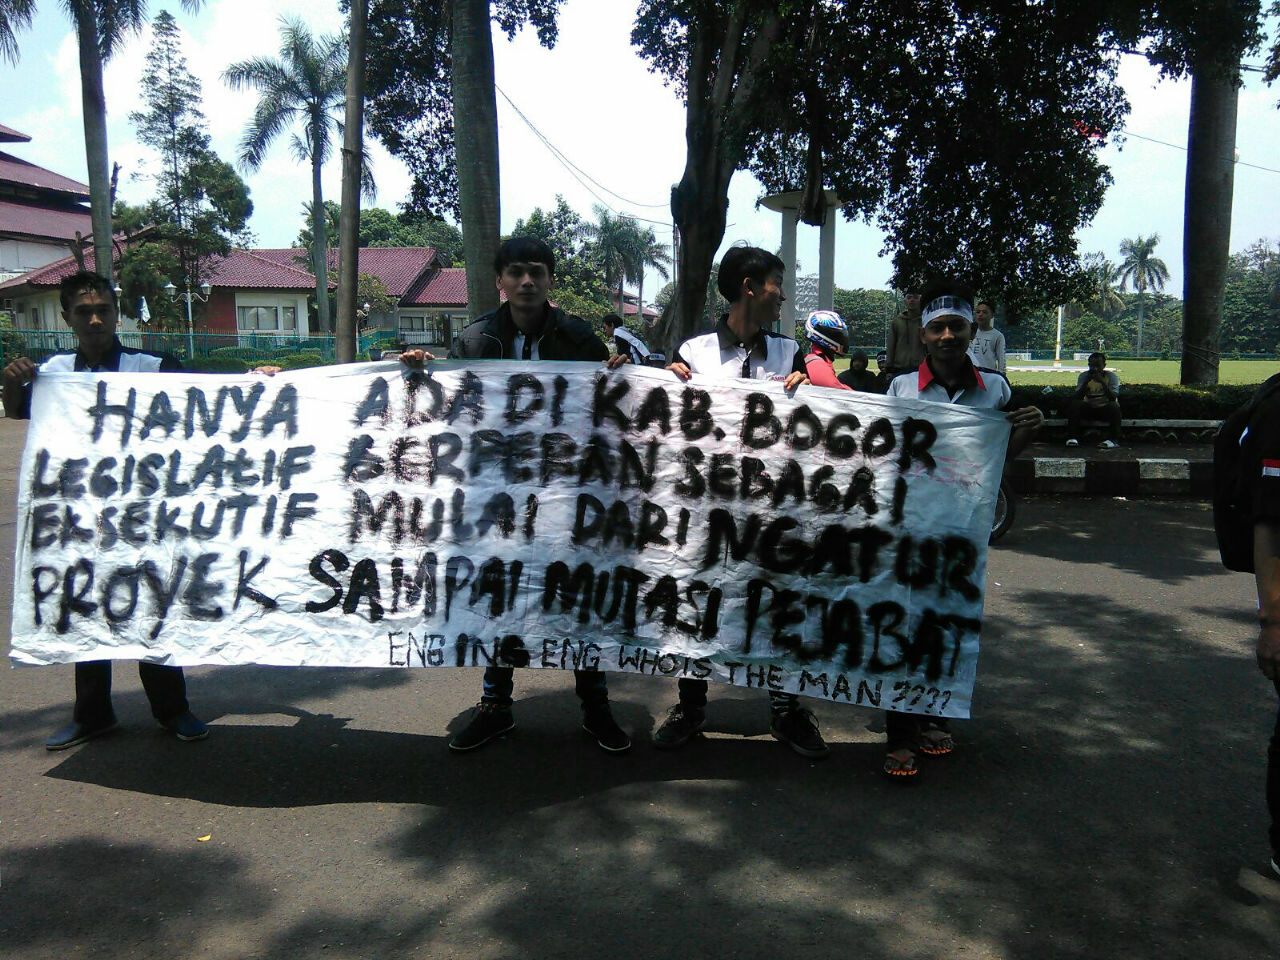 HANYA ADA DI KAB. BOGOR
LEGISLATIF BERPERAN SEBAGAI
EKSEKUTIF MULAI DARI NGATUR
PROYEK SAMPAI MUTASI PEJABAT
ENG ING ENG WHO IS THE MAN ????